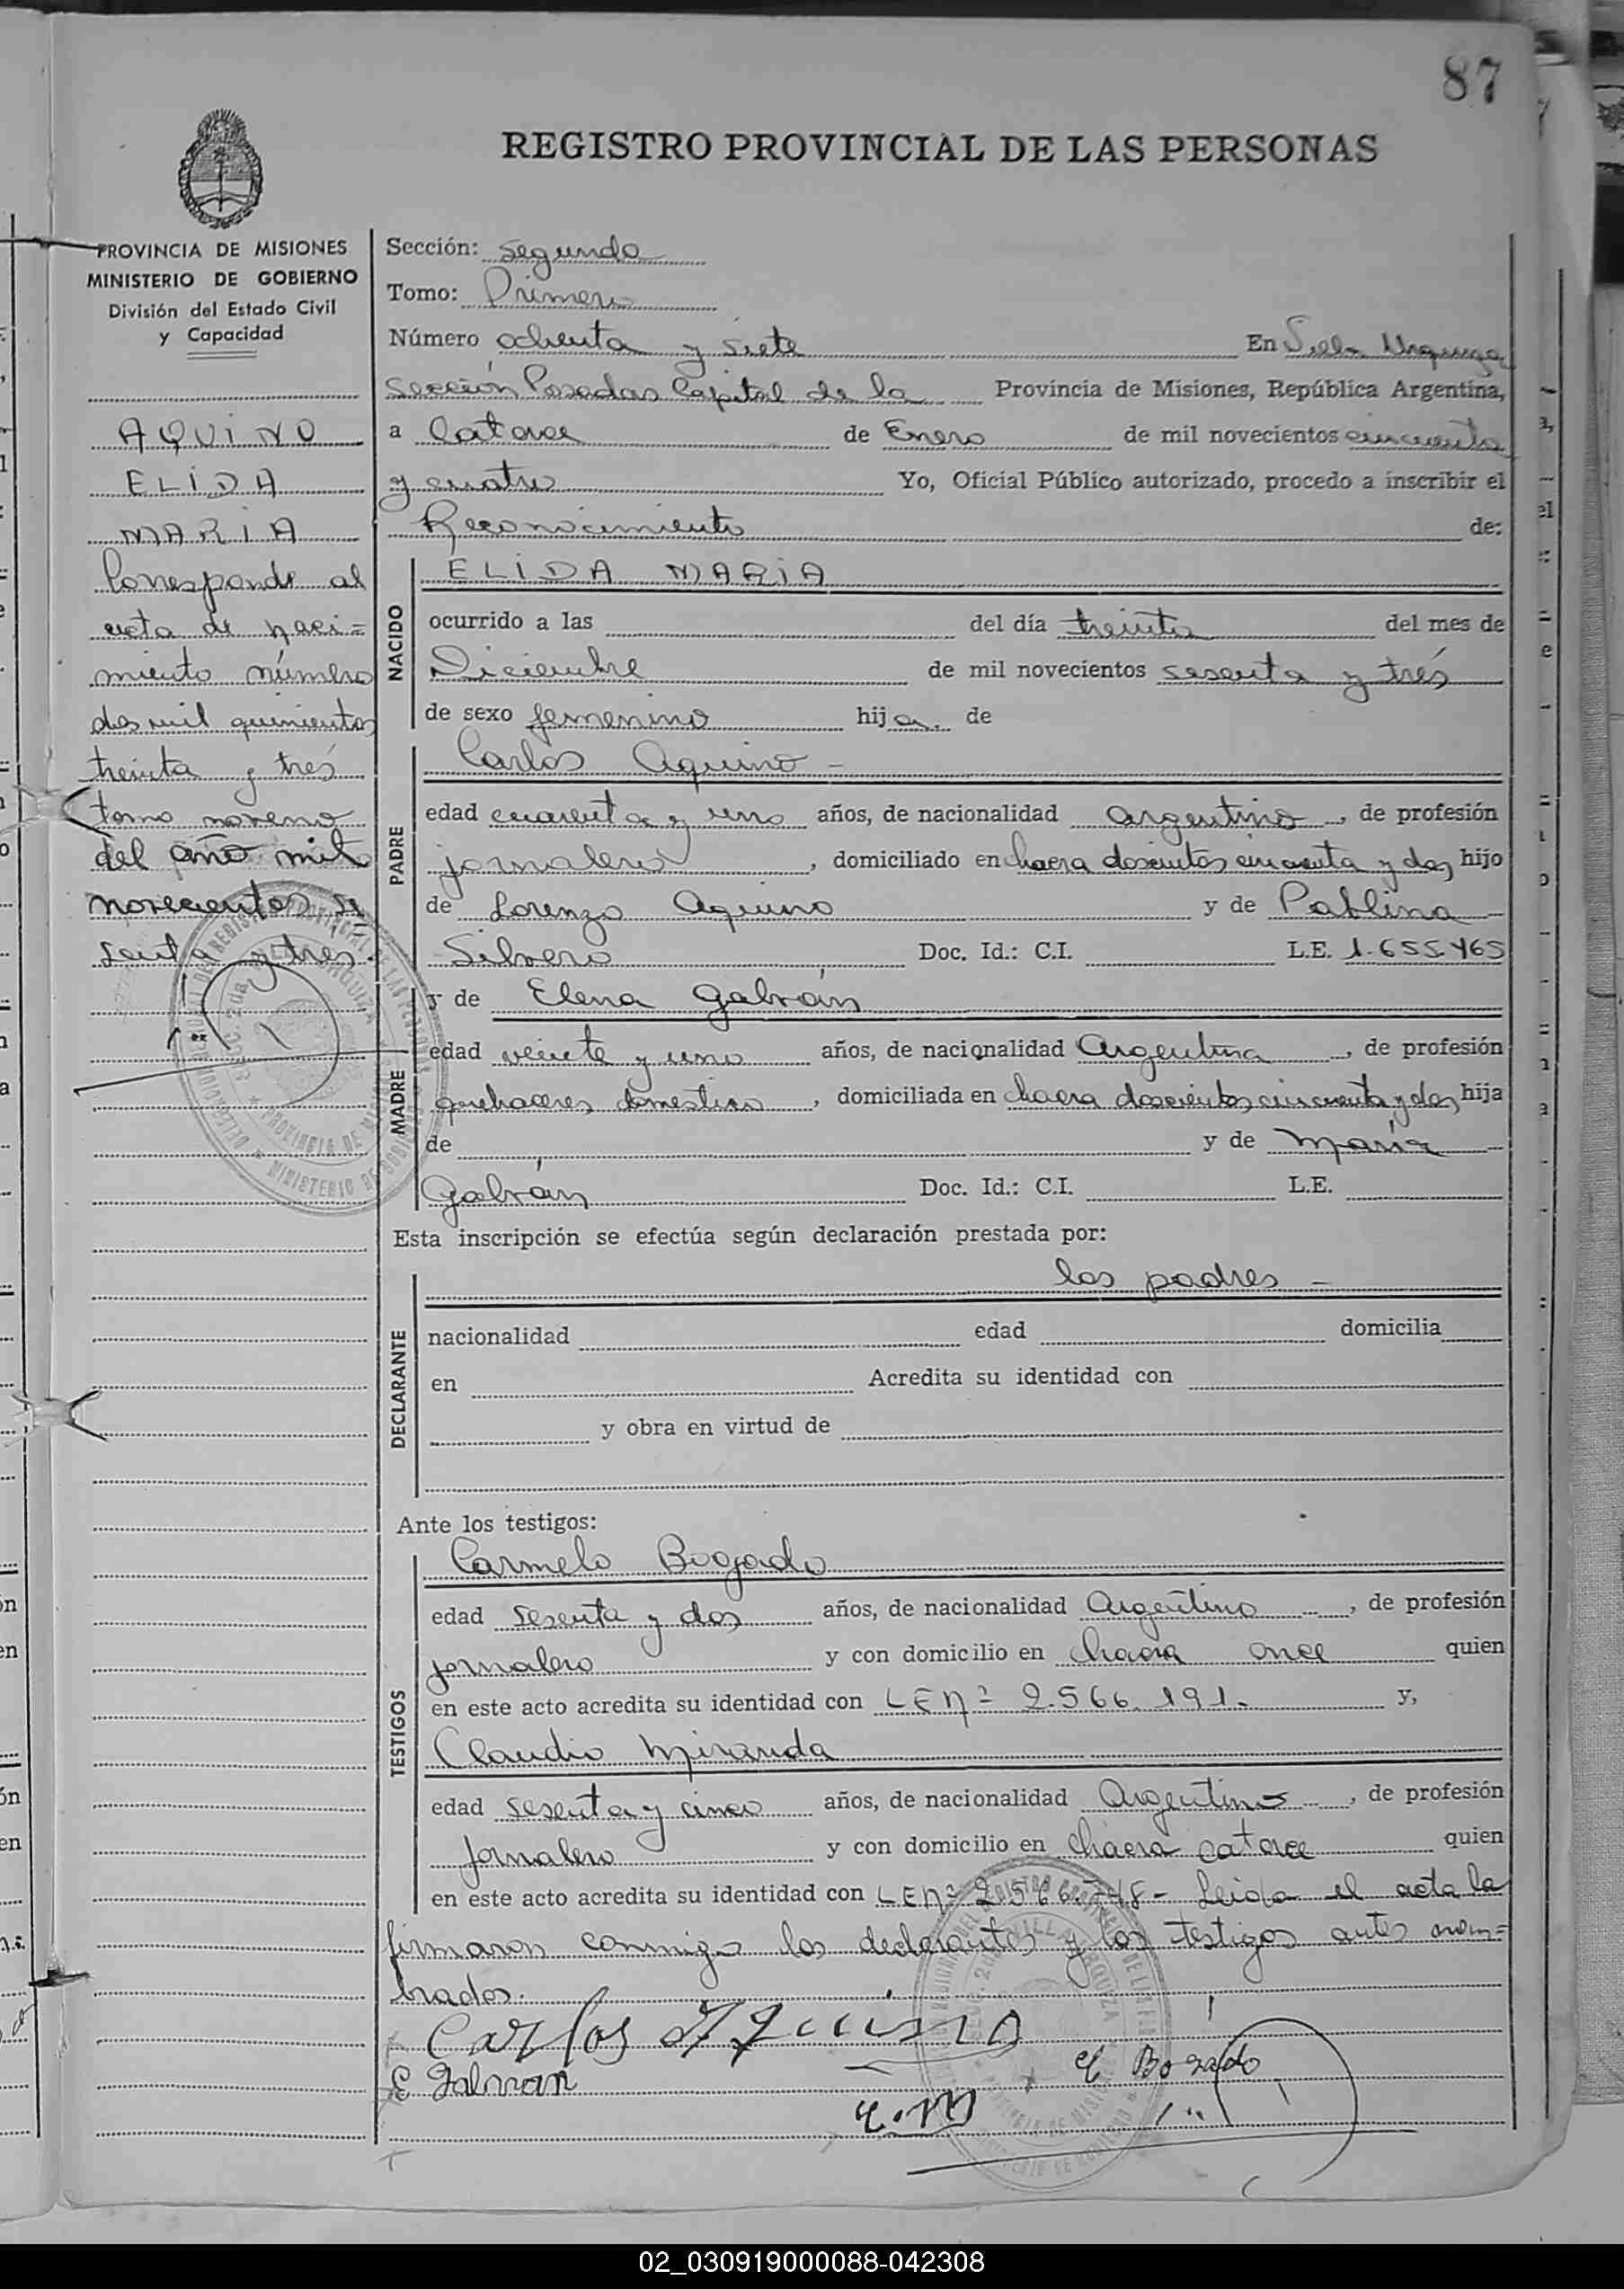 87
REGISTRO PROVINCIAL DE LAS PERSONAS
PROVINCIA DE MISIONES
MINISTERIO DE GOBIERNO
División del Estado Civil
y Capacidad
AQUINO
ELIDA
MARIA
Corresponde al
acta de naci=
miento número
dos mil quinientos
treinta y trés
tomo noveno
del año mil
novecientos se
senta y tres.
Sección: segunda
Tomo: Primero
Número ochenta y siete En Villa Urquiza
Sección Posadas Capital de la Provincia de Misiones, República Argentina,
a Catorce de Enero de mil novecientos cincuenta
y cuatro Yo, Oficial Público autorizado, procedo a inscribir el
Reconocimiento de:
NACIDO
ELIDA MARIA
ocurrido a las del día treinta del mes de
Diciembre de mil novecientos sesenta y trés
de sexo femenino hija de
PADRE
Carlos Aquino -
edad cuarenta y uno años, de nacionalidad argentino, de profesión
jornalero, domiciliado en chacra doscientos cincuenta y dos hijo
de Lorenzo Aquino y de Pablina
Silvero Doc. Id.: C.I. L.E. 1.655.465
MADRE
y de Elena Galván
edad veinte y uno años, de nacionalidad Argentina, de profesión
quehaceres domestico, domiciliada en chacra doscientos cincuenta y dos hija
de y de María
Galván Doc. Id.: C.I. L.E.
Esta inscripción se efectúa según declaración prestada por:
DECLARANTE
los padres -
nacionalidad edad domicilia
en Acredita su identidad con
y obra en virtud de
Ante los testigos:
TESTIGOS
Carmelo Bogado
edad sesenta y dos años, de nacionalidad Argentino, de profesión
jornalero y con domicilio en chacra once quien
en este acto acredita su identidad con LENº 2.566.191. y,
Claudio Miranda
edad sesenta y cinco años, de nacionalidad Argentino, de profesión
Jornalero y con domicilio en chacra catorce quien
en este acto acredita su identidad con LENº 2.566.748- Leida el acta la
firmaron conmigo los declarantes y los testigos antes nom=
brados.
Carlos Aquino
E Galvan
C Bogado
C.M
02_030919000088-042308